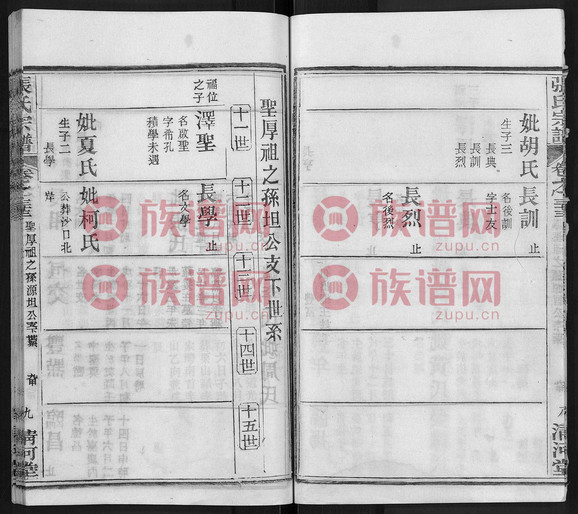 張氏宗譜
卷之三
清河堂
妣胡氏
生子三
長典
長訓
長烈
長訓
名後訓
字士友
止
長烈
名後烈
止
聖厚祖之孫坦公支下世系
十一世
十二世
十三世
十四世
十五世
福位之子
澤聖
名啟聖
字希孔
積學未遇
長學
名文學
止
妣夏氏
生子二
長學
妣柯氏
公葬沙日北
張氏宗譜
卷之三
聖厚祖之孫源坦公
九
清河堂
族谱网
zupu.cn
族谱网
zupu.cn
族谱网
zupu.cn
族谱网
zupu.cn